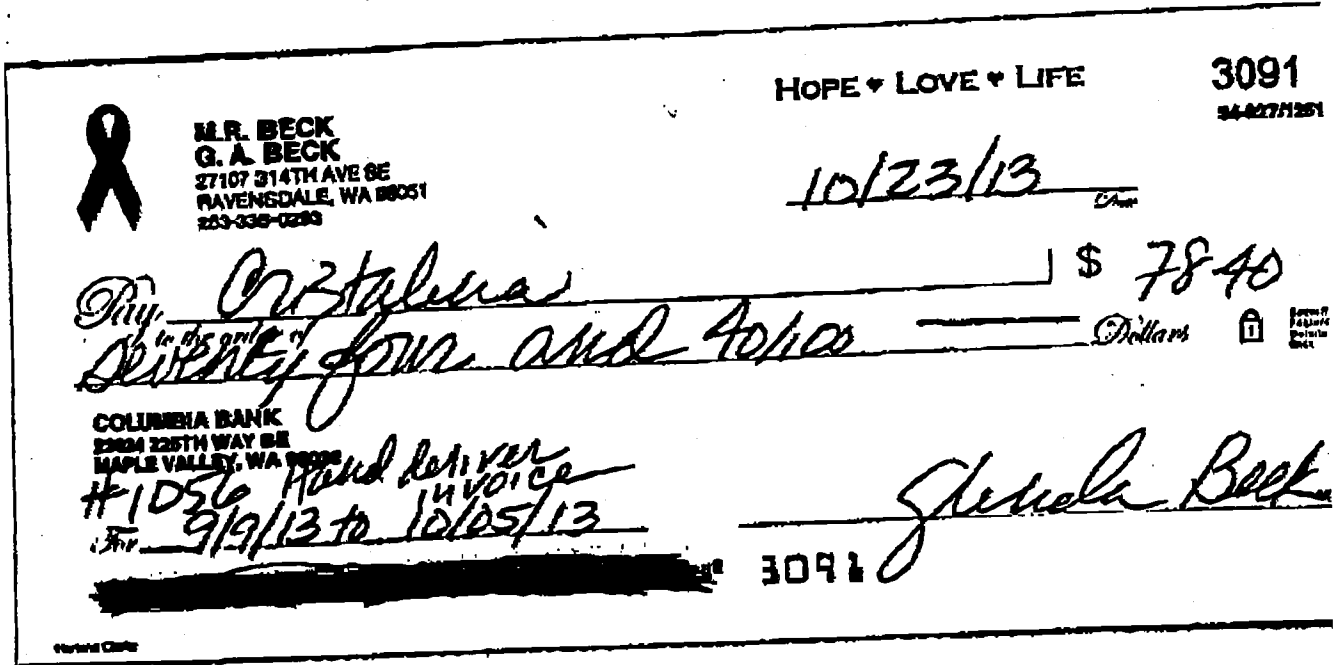 HOPE ♥ LOVE ♥ LIFE
3091
M.R. BECK
G. A. BECK
27107 314TH AVE SE
RAVENSDALE, WA 98051
10/23/13
Date
Pay to the order of Cristalina $ 78 40
Seventy four and 40/100 Dollars
COLUMBIA BANK
225TH WAY SE
MAPLE VALLEY, WA
#1056 Hand deliver
invoice
For 9/9/13 to 10/05/13
Glenda Beck
3091
Harland Clarke